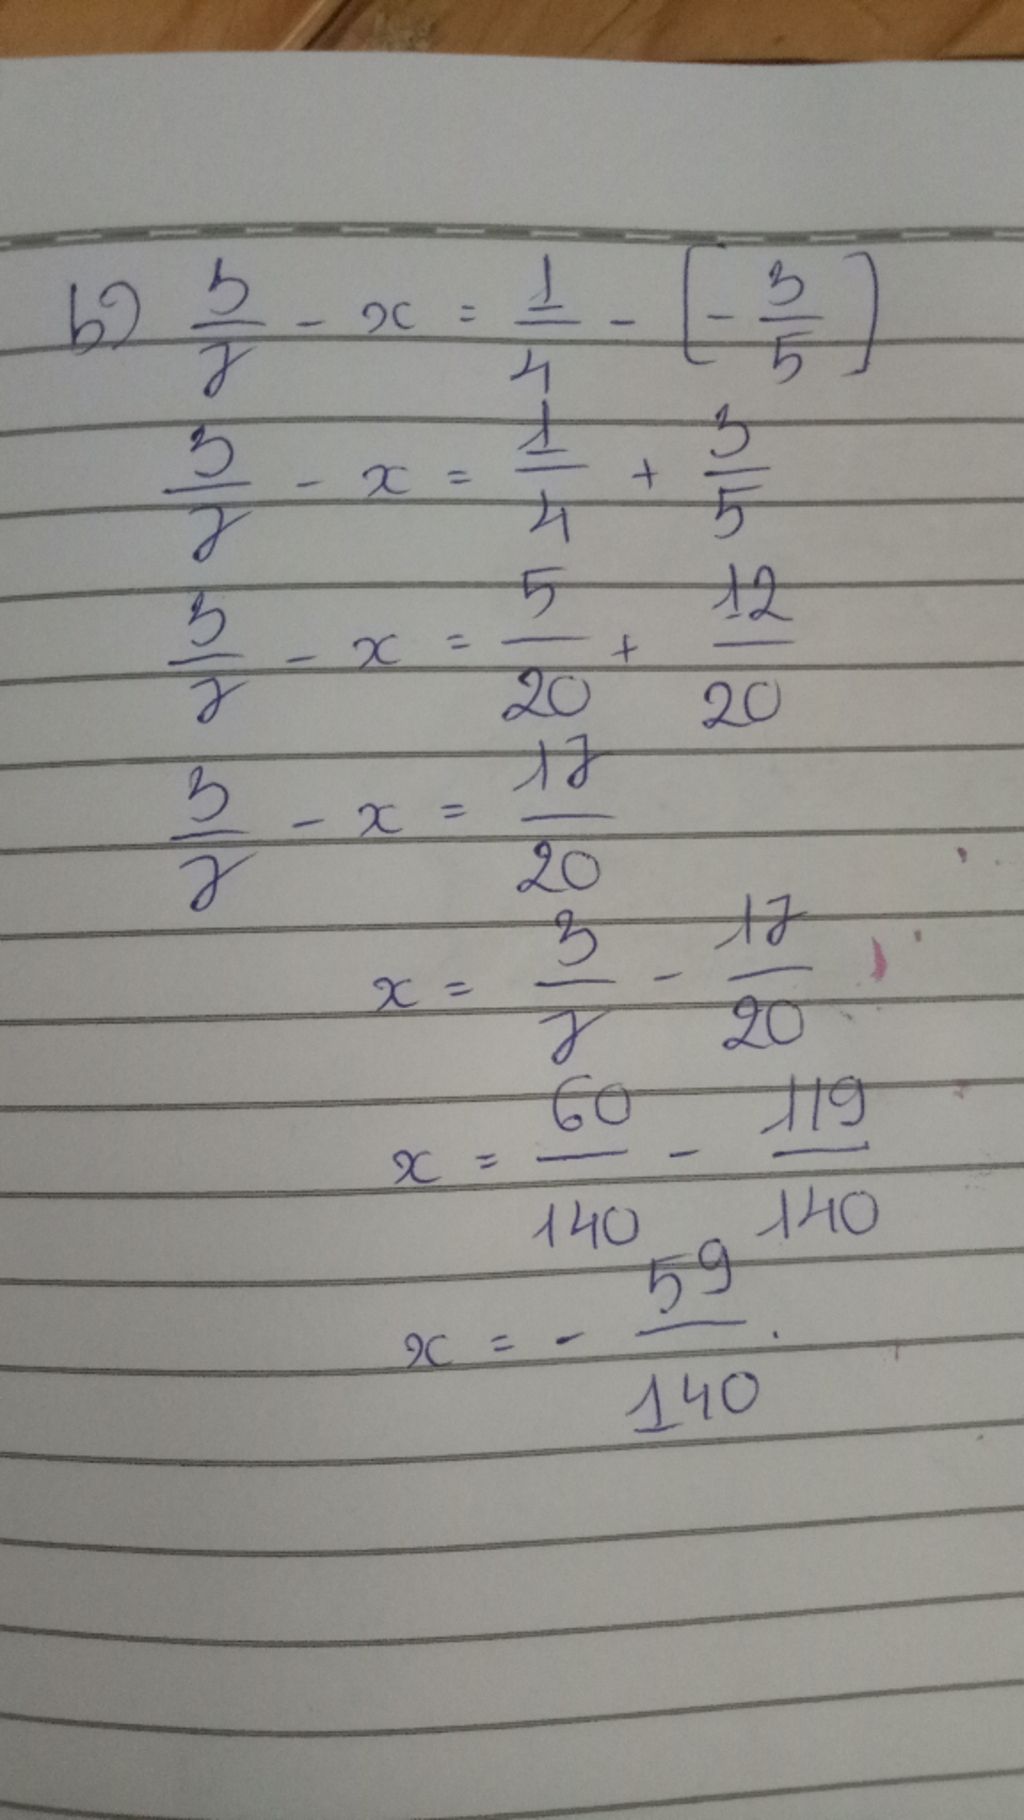 b) 3/7 - x = 1/4 - [- 3/5]
3/7 - x = 1/4 + 3/5
3/7 - x = 5/20 + 12/20
3/7 - x = 17/20
x = 3/7 - 17/20
x = 60/140 - 119/140
x = - 59/140.